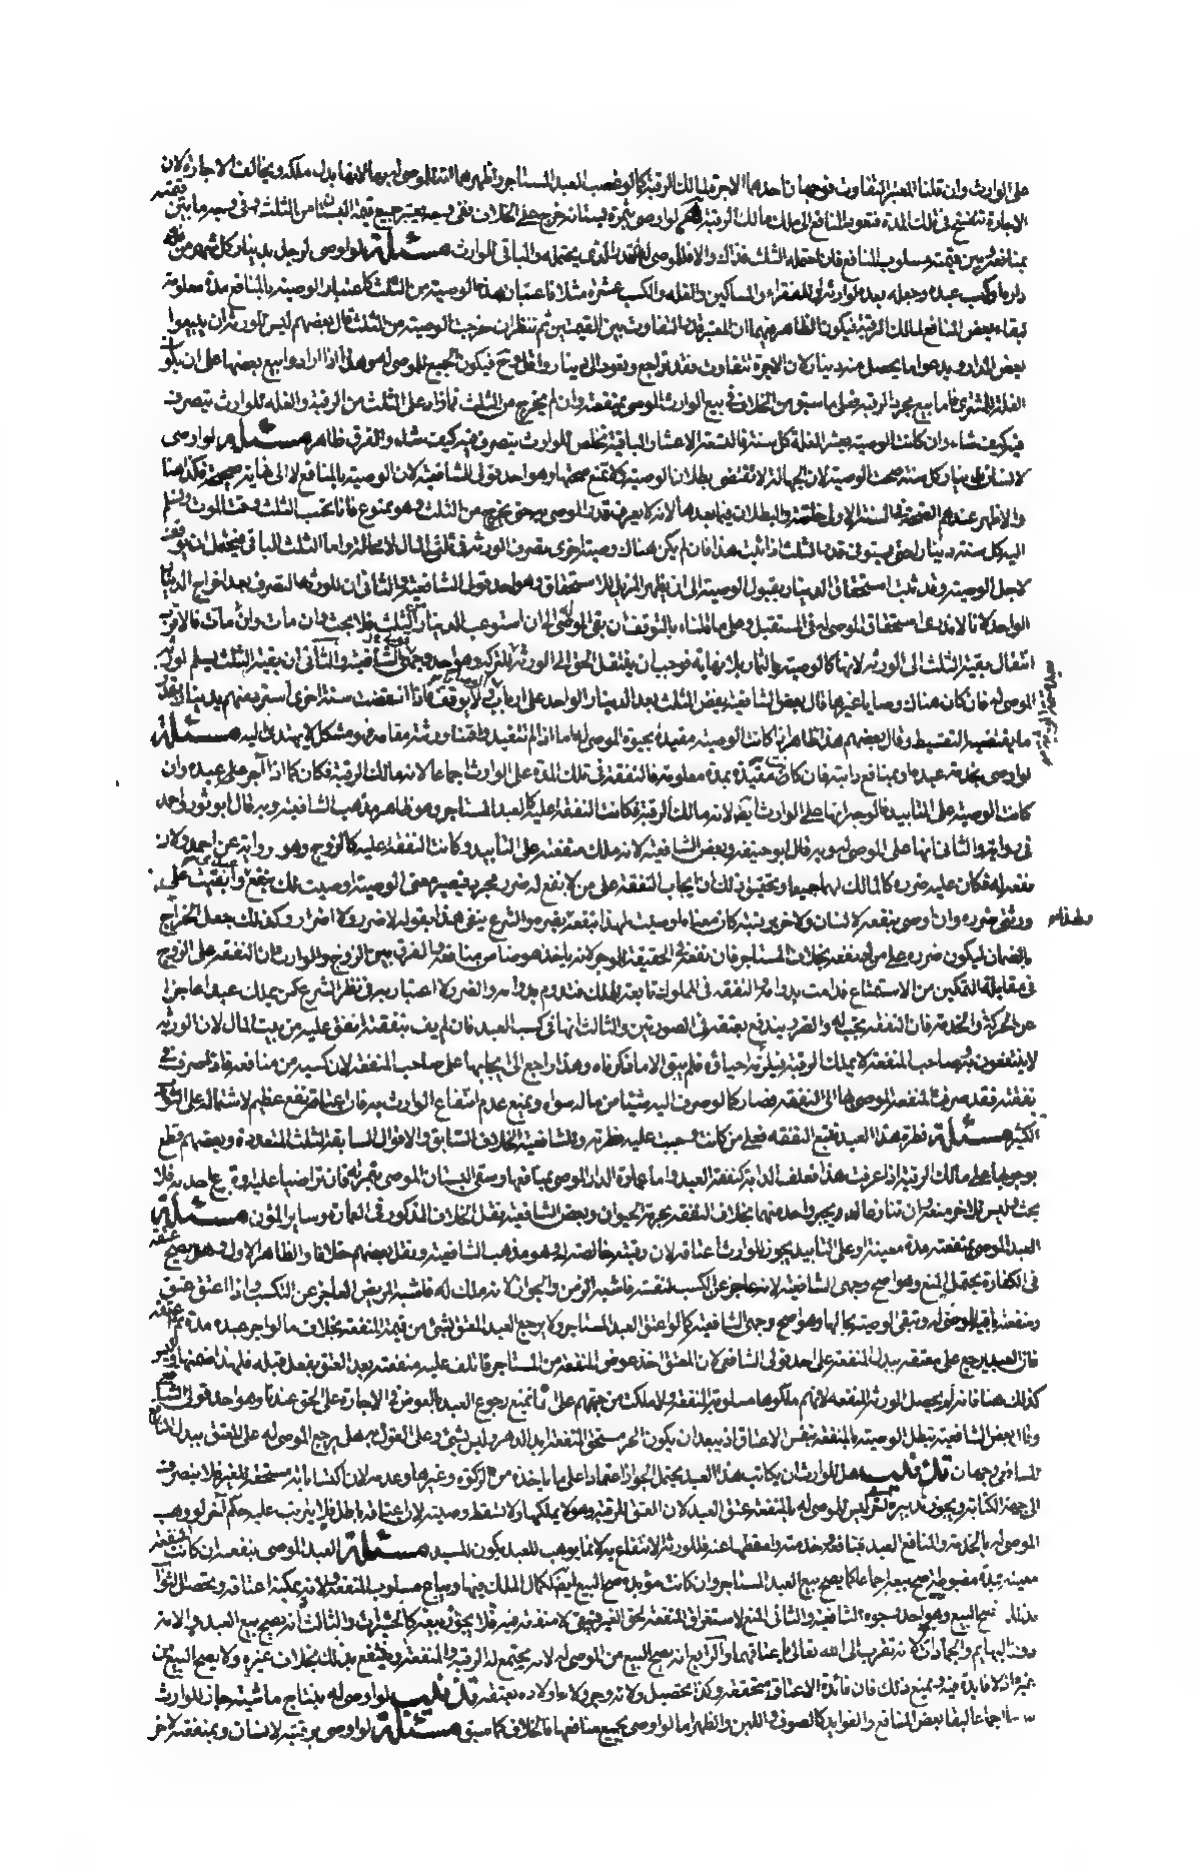 على الوارث وان قلنا المعتبر التفاوت فوجهان احدهما الاجرة لمالك الرقبة كما لو غصب العبد المستاجر واظهرهما انها للموصى له بها لانها بدل ملكه ويخالف الاجارة لان
الاجارة تنفسخ في تلك المدة فتعود المنافع الى ملك مالك الرقبة لو اوصى بثمرة بستانه خرج على الخلاف ففي وجه يعتبر جميع قيمة البستان من الثلث وفي وجه ما بين قيمته
بمنافعه وبين قيمته مسلوب المنافع فان احتمله الثلث فذاك والا فللموصى له القدر الذي يحتمله والباقي للوارث مسئلة لو اوصى لرجل بدينار كل شهر من غلة
داره او كسب عبده وجعله بعده لوارثه او للفقراء والمساكين والغلة والكسب عشرة مثلا فاعتبار هذه الوصية من الثلث كاعتبار الوصية بالمنافع مدة معلومة
لبقاء بعض المنافع لمالك الرقبة فيكون الظاهر منهما ان المعتبر قدر التفاوت بين القيمتين ثم ننظر ان خرجت الوصية من الثلث قال بعضهم ليس للورثة ان يبيعوا
بعض الدار ويدعوا ما يحصل منه دينار لان الاجرة تتفاوت فقد تراجع وتعود الى دينار واقل فيكون الجميع للموصى له وهذا اذا ارادوا بيع بعضها على ان يكون
الغلة للمشتري فاما بيع مجرد الرقبة فعلى ما سبق من الخلاف في بيع الوارث الموصى بمنفعته وان لم يخرج من الثلث فما زاد على الثلث من الرقبة والغلة للوارث يتصرف
فيه كيف شاء وان كانت الوصية بعشر الغلة كل سنة فالتسعة الاعشار الباقية تخلص للوارث يتصرف فيه كيف شاء والفرق ظاهر مسئلة لو اوصى
لانسان بدينار كل سنة صحت الوصية لان الجهالة لا تقتضي بطلان الوصية كما تمنع صحتها وهو احد قولي الشافعية لان الوصية بالمنافع لا الى غاية صحيحة فكذا هنا
والاظهر عندهم الصحة في السنة الاولى خاصة والبطلان فيما بعدها لانه لا يعرف قدر الموصى به حتى يخرج من الثلث وهو ممنوع فانا نحتسب الثلث وقت الموت ونسلم
اليه كل سنة دينارا حتى يستوفي قدر الثلث اذا ثبت هذا فان لم يكن هناك وصية اخرى يصرف الورثة في ثلثي المال لا محالة واما الثلث الباقي فيحتمل ان يوقف
لاجل الوصية وقد ثبت استحقاق الدينار بقبول الوصية الى ان يظهر المزيل للاستحقاق وهو احد قولي الشافعية والثاني ان للورثة التصرف بعد اخراج الدينار
الواحد لانا لا ندري استحقاق الموصى له في المستقبل وعلى ما قلناه بالتوقف ان بقي الموصى له الى ان استوعب الدينار الثلث فلا بحث وان مات فالاقرب
انتقال بقية الثلث الى الورثة لانها كالوصية بالثمار بلا نهاية فوجب ان ينتقل الحق الى الورثة وهو احد وجهي الشافعية والثاني ان بقية الثلث يسلم لورثة
الموصى له فان كان هناك وصايا غيرها قال بعض الشافعية يفض الثلث بعد الدينار الواحد على ارباب ولا يوقف فاذا انقضت سنة اخرى استرد منهم بدينار بقدر
ما يقتضيه التقسيط وقال بعضهم هذا ظاهر اذا كانت الوصية مقيدة بحيوة الموصى له اما اذا لم تتقيد واقمنا ورثته مقامه فهو مشكل لا يهتدى اليه مسئلة
لو اوصى بخدمة عبده او بمنافع دابته فان كان مقيدة بمدة معلومة فالنفقة في تلك المدة على الوارث اجماعا لانه مالك الرقبة فكان كما اذا آجر على عبده وان
كانت الوصية على التابيد فالوجه انها على الوارث ايضا لانه مالك الرقبة فكانت النفقة عليه كالعبد المستاجر وهو ظاهر مذهب الشافعية وبه قال ابو ثور واحمد
في رواية والثاني انها على الموصى له وبه قال ابو حنيفة وبعض الشافعية لانه ملك منفعته على التأبيد وكانت النفقة عليه كالزوج وهو رواية عن احمد ولان
نفعه له فكان عليه ضرره كالمالك لهما جميعا وتحقيق ذلك ان ايجاب النفقة على من لا نفع له ضرر مجرد فيصير معنى الوصية اوصيت لك بنفع وابقيت على
ورثتي ضرره وان اوصى بنفعه لانسان ولاخر برقبته كان معناه اوصيت لهذا بنفعه بضره والشرع ينفي هذا بقوله لا ضرر ولا اضرار وكذلك جعل الخراج
بالضمان ليكون ضرره على من له نفعه بخلاف المستاجر فان نفعه في الحقيقة للموجر لانه ياخذ عوضا من منافعه والفرق بين الزوج والوارث ان النفقة على الزوج
في مقابلة التمكين من الاستمتاع فدامت بدوامه والنفقة في المملوك تابعة للملك فتدوم بدوامه والضرر لا اعتبار به في نظر الشرع كمن يملك عبدا عاجزا
عن الحركة والخدمة فان النفقة تجب له والضرر يندفع بعتقه في الصورتين والثالث انها في كسب العبد فان لم يف بنفقته انفق عليه من بيت المال لان الورثة
لا ينتفعون به وصاحب المنفعة لا يملك الرقبة فيلزمه احياؤه فلم يبق الا ما ذكرناه وهذا راجع الى ايجابها على صاحب المنفعة لان كسبه من منافعه فاذا صرف في
نفقته فقد صرفت المنفعة الموصى بها الى النفقة فصار كما لو صرف اليه شيئا من ماله سواه ويمنع عدم انتفاع الوارث به فان اعتاقه نفع عظيم لاشتماله على الثواب
الكثير مسئلة فطرة هذا العبد تتبع النفقة فعلى من كانت وجبت عليه فطرته وللشافعية الخلاف السابق والاقوال السابقة الثلث المتعددة وبعضهم قطع
بوجوبها على مالك الرقبة اذا عرفت هذا فعلف الدابة كنفقة العبد واما عمارة الدار الموصى بمنافعها وسقي البستان الموصى بثمرته فان تراضيا عليه او تبرع احدهما به فلا
بحث وليس للاخر منعه وان تنازعا لم يجبر واحد منهما بخلاف النفقة لحرمة الحيوان وبعض الشافعية نقل الخلاف المذكور في العمارة وسائر المؤن مسئلة
العبد الموصى بمنفعته مدة معينة او على التابيد يجوز للوارث اعتاقه لان رقبته خالصة له وهو مذهب الشافعية ونقل بعضهم خلافا والظاهر الاول وهل يصح عتقه
في الكفارة يحتمل المنع وهو اصح وجهي الشافعية لانه عاجز عن الكسب لنفسه فاشبه الزمن والجواز لانه ملك له فاشبه المريض العاجز عن التكسب واذا اعتق عتق
ومنفعته باقية للموصى له وتبقى الوصية بحالها وهو اصح وجهي الشافعية كما لو اعتق العبد المستاجر ولا يرجع العبد المعتق بشئ من قيمة المنفعة بخلاف ما لو اجر عبده مدة ثم عتقه
فان العبد يرجع على معتقه ببدل المنفعة على احد قولي الشافعي لان المعتق اخذ عوض المنفعة من المستاجر فاتلف عليه منفعته بعد العتق بفعل قبله فلهذا ضمنها وليس
كذلك هنا فانه لم يحصل لورثه المنفعة لانهم ملكوها مسلوبة المنفعة ولا ملكت من جهتهم على انا نمنع رجوع العبد بالعوض في الاجارة على الحق عندنا وهو احد قولي الشافعي
وقال بعض الشافعية تبطل الوصية بالمنفعة بنفس الاعتاق اذ يبعد ان يكون الحر مستحق المنفعة ابد الدهر وليس بشئ وعلى القول به هل يرجع الموصى له على المعتق ببدل المنافع
للشافعي وجهان تذنيب هل للوارث ان يكاتب هذا العبد يحتمل الجواز اعتمادا على ما ياخذه من الزكوة وغيرها وعدمه لان اكسابه مستحقة للغير فلا ينصرف
الى جهة الكتابة ويجوز تدبيره وليس للموصى له بالمنفعة عتق العبد لان العتق للرقبة وهو لا يملكها ولا تسقط وصيته لان اعتاقه باطل فلا يترتب عليه حكم آخر لو وهب
الموصى له بالخدمة والمنافع العبد منافعه خدمته واسقطها عنه فللورثة الانتفاع به لان ما يوهب للعبد يكون للسيد مسئلة العبد الموصى بمنفعته ان كانت المنفعة
معينة بمدة مضبوطة صح بيعه اجماعا كما يصح بيع العبد المستاجر وان كانت مؤبدة صح البيع ايضا لكمال الملك فيها ويباع مسلوب المنفعة ولانه يمكنه اعتاقه وتحصل الثواب
 صح البيع وهو احد وجوه الشافعية والثاني المنع لاستغراق المنفعة بحق الغير فيبقى لا منفعة فيه فلا يجوز بيعه كالحشرات والثالث انه يصح بيع العبد والامة
دون البهائم والجمادات لانه تتقرب الى الله تعالى باعتاقهما والرابع انه يصح البيع من الموصى له لانه يجتمع له الرقبة والمنفعة وينتفع بذلك بخلاف غيره ولا يصح البيع من
غيره اذ لا فايدة فيه ويمنع ذلك فان فائدة الاعتاق متحققة وكذا تحصيل ولائه وجر ولاء اولاده بعتقه تذنيب لو اوصى له بنتاج ماشيته جاز للوارث
بيعها اجماعا لبقاء بعض المنافع والفوايد كالصوف واللبن والظهر اما لو اوصى بجميع منافعها فالخلاف كما سبق مسئلة لو اوصى برقبته لانسان وبمنفعته لاخر